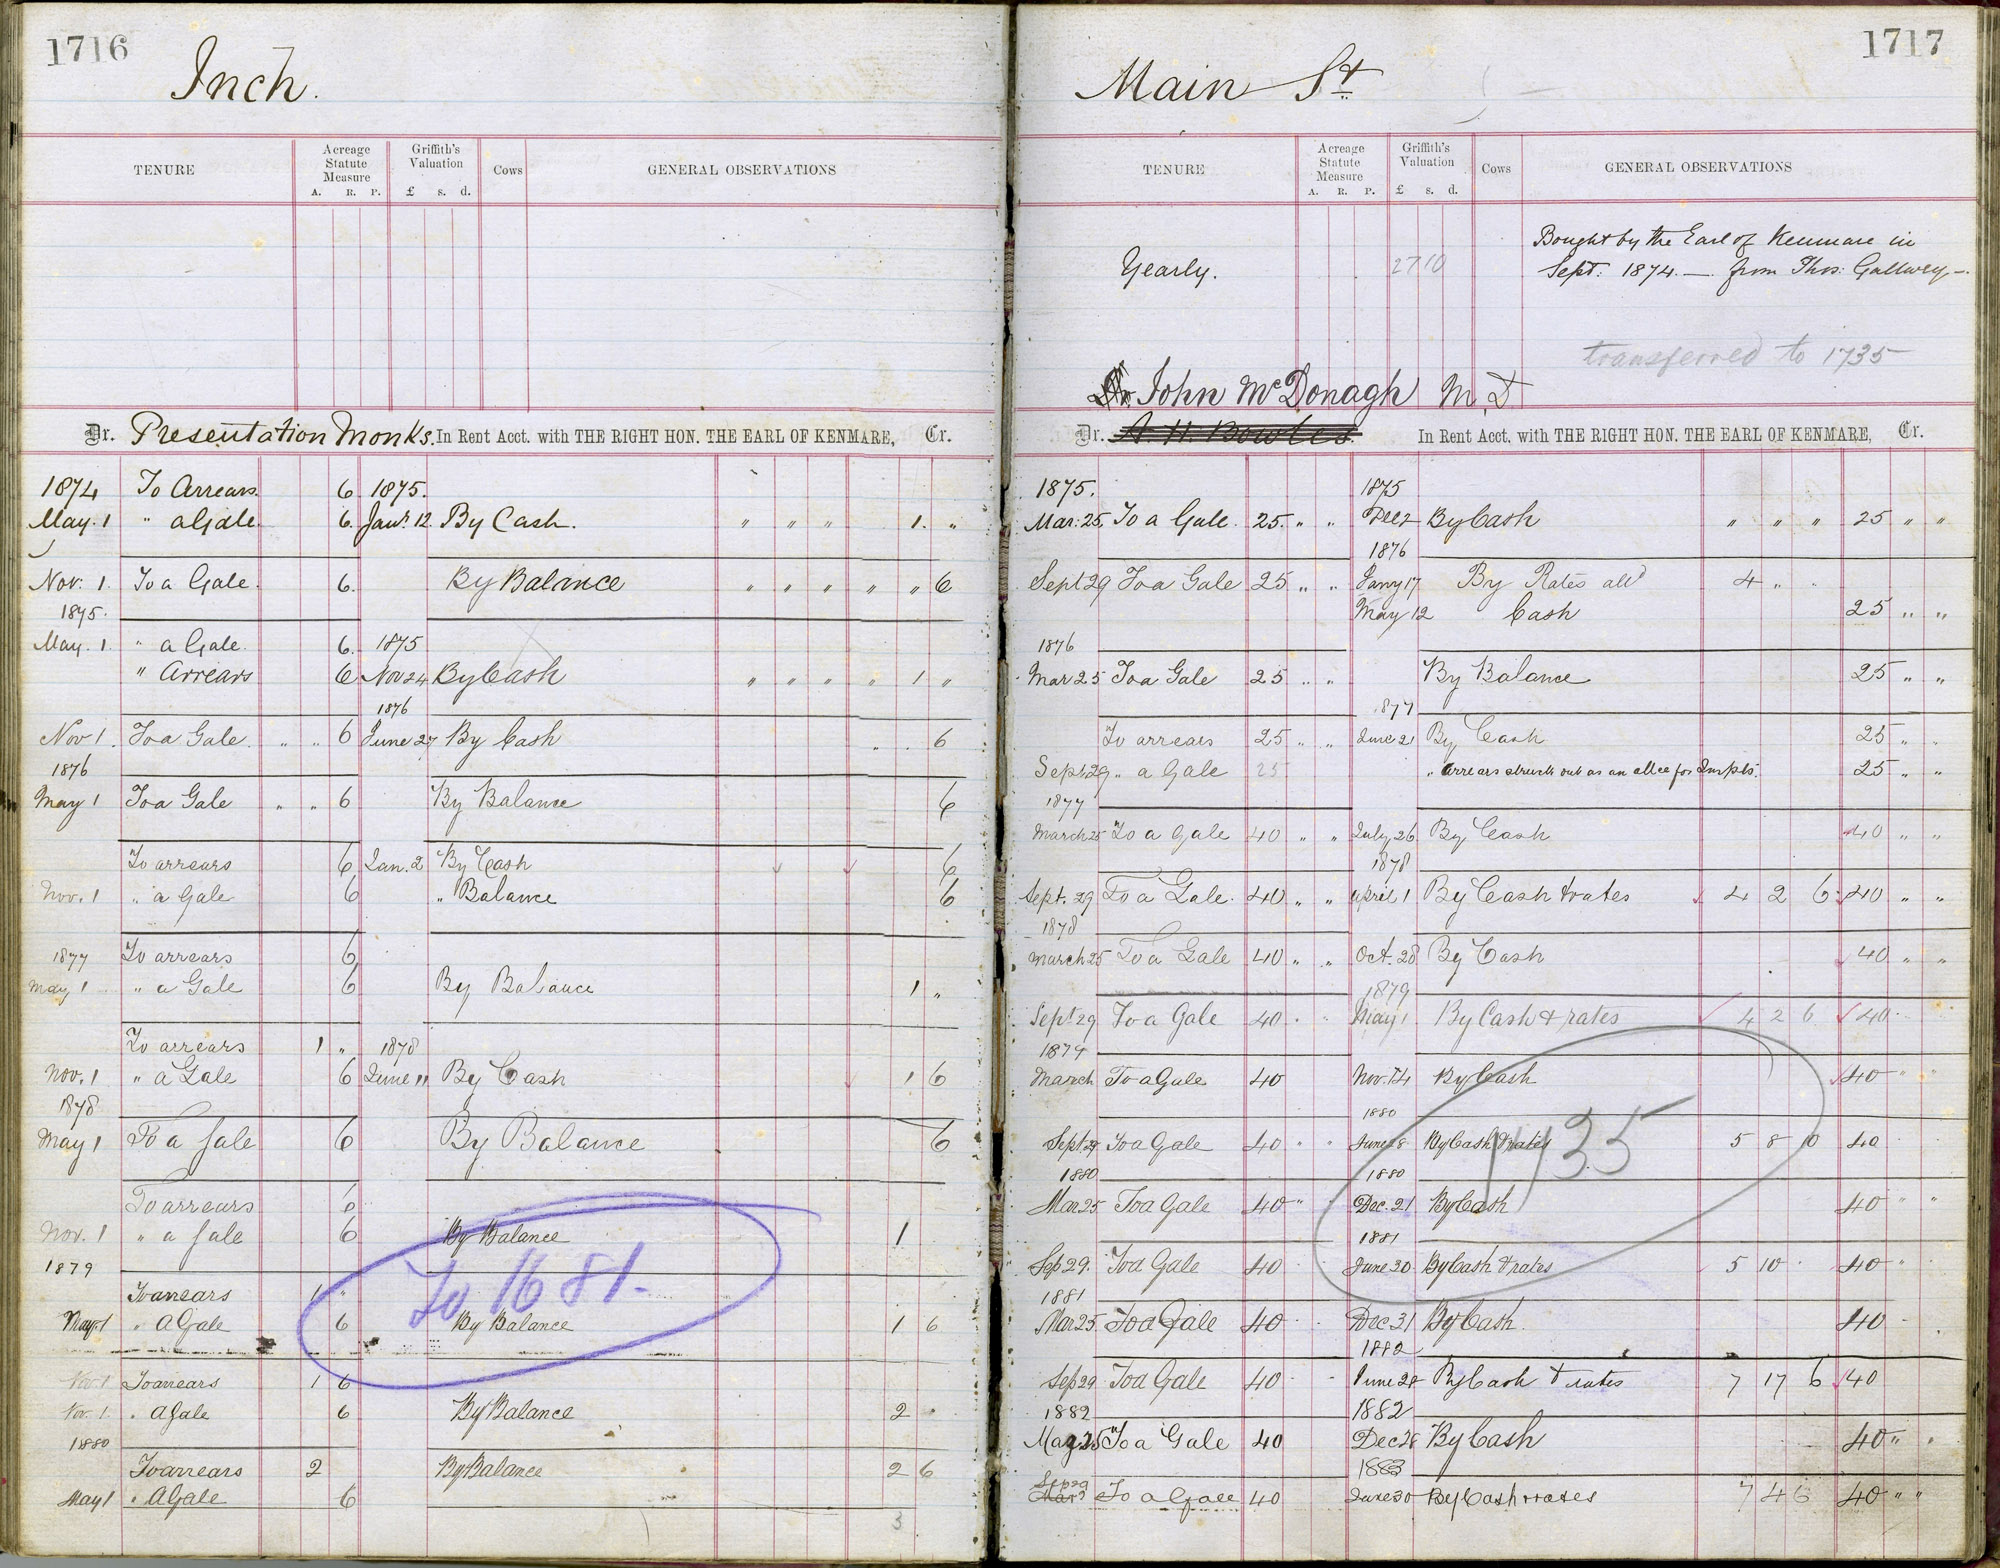 1716
Inch.
TENURE Acreage Statute Measure A. R. P. Griffith's Valuation £ s. d. Cows GENERAL OBSERVATIONS
Dr. Presentation Monks. In Rent Acct. with THE RIGHT HON. THE EARL OF KENMARE, Cr.
1874 To Arrears. 6 1875.
May. 1 " a Gale. 6. Jany 12 By Cash. " " " 1. "
Nov. 1. To a Gale. 6. By Balance " " " " " 6
1875.
May. 1. " a Gale. 6. 1875
" Arrears 6 Nov 24 By Cash " " " " 1 "
1876
Nov 1. To a Gale. " " 6 June 27 By Cash " . 6
1876
May 1 To a Gale " " 6 By Balance 6
To arrears 6 Jan. 2 By Cash 6
Nov. 1 " a Gale 6 " Balance 6
1877 To arrears 6
May 1 " a Gale 6 By Balance 1 "
To arrears 1 " 1878
Nov. 1 " a Gale 6 June 11 By Cash 1 6
1878
May 1 To a Gale 6 By Balance 6
To arrears 6
Nov. 1 " a Gale 6 By Balance 1
1879
To arrears 1 "
To 1681.
May 1 " a Gale 6 By Balance 1 6
Nov 1 To arrears 1 6
Nov. 1. " a Gale 6 By Balance 2 "
1880
To arrears 2 By Balance 2 6
May 1 " a Gale 6
3
1717
Main St
TENURE Acreage Statute Measure A. R. P. Griffith's Valuation £ s. d. Cows GENERAL OBSERVATIONS
Bought by the Earl of Kenmare in
Yearly. 27 10 Sept: 1874. — from Thos: Gallwey —.
transferred to 1735
John McDonagh M.D
Dr. A. H. Bowles. In Rent Acct. with THE RIGHT HON. THE EARL OF KENMARE, Cr.
1875. 1875
Mar: 25, To a Gale. 25. " " Dec 2 By Cash " " " 25 " "
1876
Sept 29 To a Gale 25 " " Jany 17 By Rates alld 4 " .
May 12 Cash 25 " "
1876
Mar 25 To a Gale 25 " " By Balance 25 " "
1877
To arrears 25 " " June 21 By Cash 25 " "
Sept. 29 " a Gale 25 " arrears struck out as an allce for Impts. 25 " "
1877
March 25 To a Gale 40 " " July 26 By Cash 40 " "
1878
Sept. 29 To a Gale. 40 " " April 1 By Cash & rates 4 2 6 40 " "
1878
March 25 To a Gale 40 " " Oct. 28 By Cash 40 " "
1879
Sept 29 To a Gale 40 . . May 1 By Cash & rates 4 2 6 40 .
1879
March To a Gale 40 Nov. 14 By Cash 40 " "
1880
1735
Sept 29 To a Gale 40 " " June 8 By Cash & rates 5 8 0 40 .
1880 1880
Mar 25 To a Gale 40 " " Dec. 21 By Cash 40 " "
1881
Sep 29. To a Gale 40 . June 30 By Cash & rates 5 10 . 40 "
1881
Mar 25 To a Gale 40 . . Dec 21 By Cash. 40 . .
1882
Sep 29 To a Gale 40 . . June 28 By Cash & rates 7 17 6 40
1882 1882
Mar 25 To a Gale 40 Dec 28 By Cash 40 " "
1883
Sep 29
Mar To a Gale 40 June 30 By Cash & rates 7 4 6 40 " "